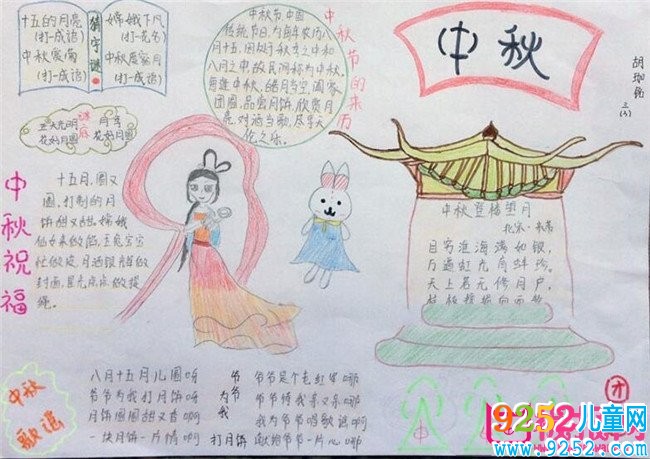 猜字谜
十五的月亮
(打一成语)
中秋赏菊
(打一成语)
嫦娥下凡
(打一花名)
中秋度蜜月
(打一成语)
谜底
正大光明
花好月圆
月季
花好月圆
中秋节的来历
中秋节中国
传统节日,为每年农历八
月十五,因处于秋季之中和
八月之中,故民间称为中秋。
每逢中秋,皓月当空,阖家
团圆,品尝月饼,欣赏月
亮,对酒当歌,尽享天
伦之乐。
中秋
胡珈
三(3)
中秋祝福
十五月,圆又
圆,打制的月
饼甜又甜。嫦娥
仙女来做馅,玉兔宝宝
忙做皮,月油银辉做
封面,星光点点做提
绳。
中秋登楼望月
北宋·米芾
目穷淮海满如银,
万道虹光育蚌珍。
天上若无修月户,
中秋歌谣
八月十五月儿圆呀
爷爷为我打月饼呀
月饼圆圆甜又香啊
一块月饼一片情啊
爷爷为我打月饼
爷爷是个老红军哪
爷爷待我亲又亲哪
我为爷爷唱歌谣啊
献给爷爷一片心哪
中
团
9252儿童网
www.9252.com